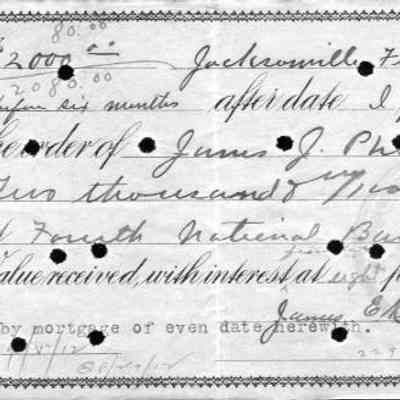 80.00
2000.00 Jacksonville, F
2080.00
before six months after date I p
he order of James J. Ph
Two thousand &
Fourth National Ba
Value received, with interest at eight p
James E
by mortgage of even date herewith.